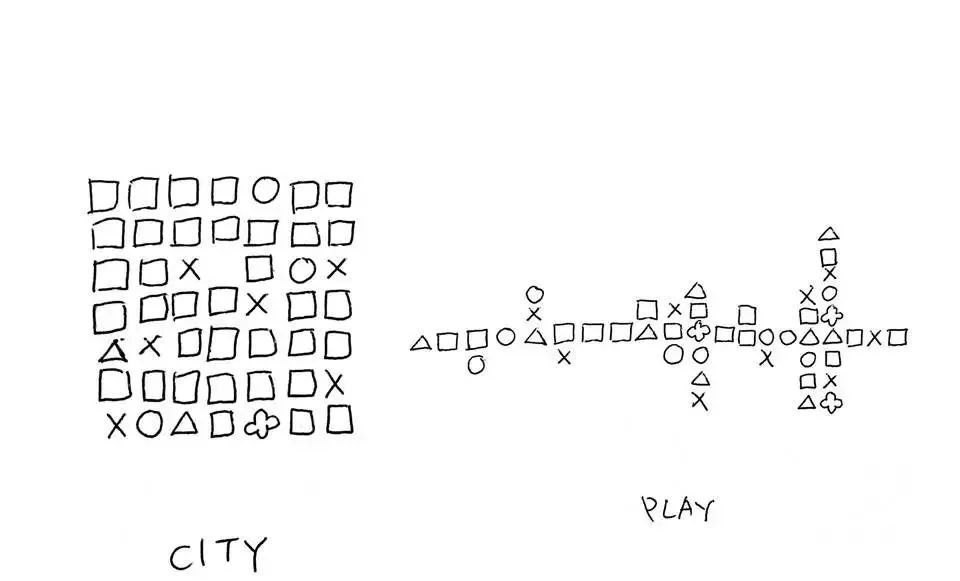 CITY
PLAY